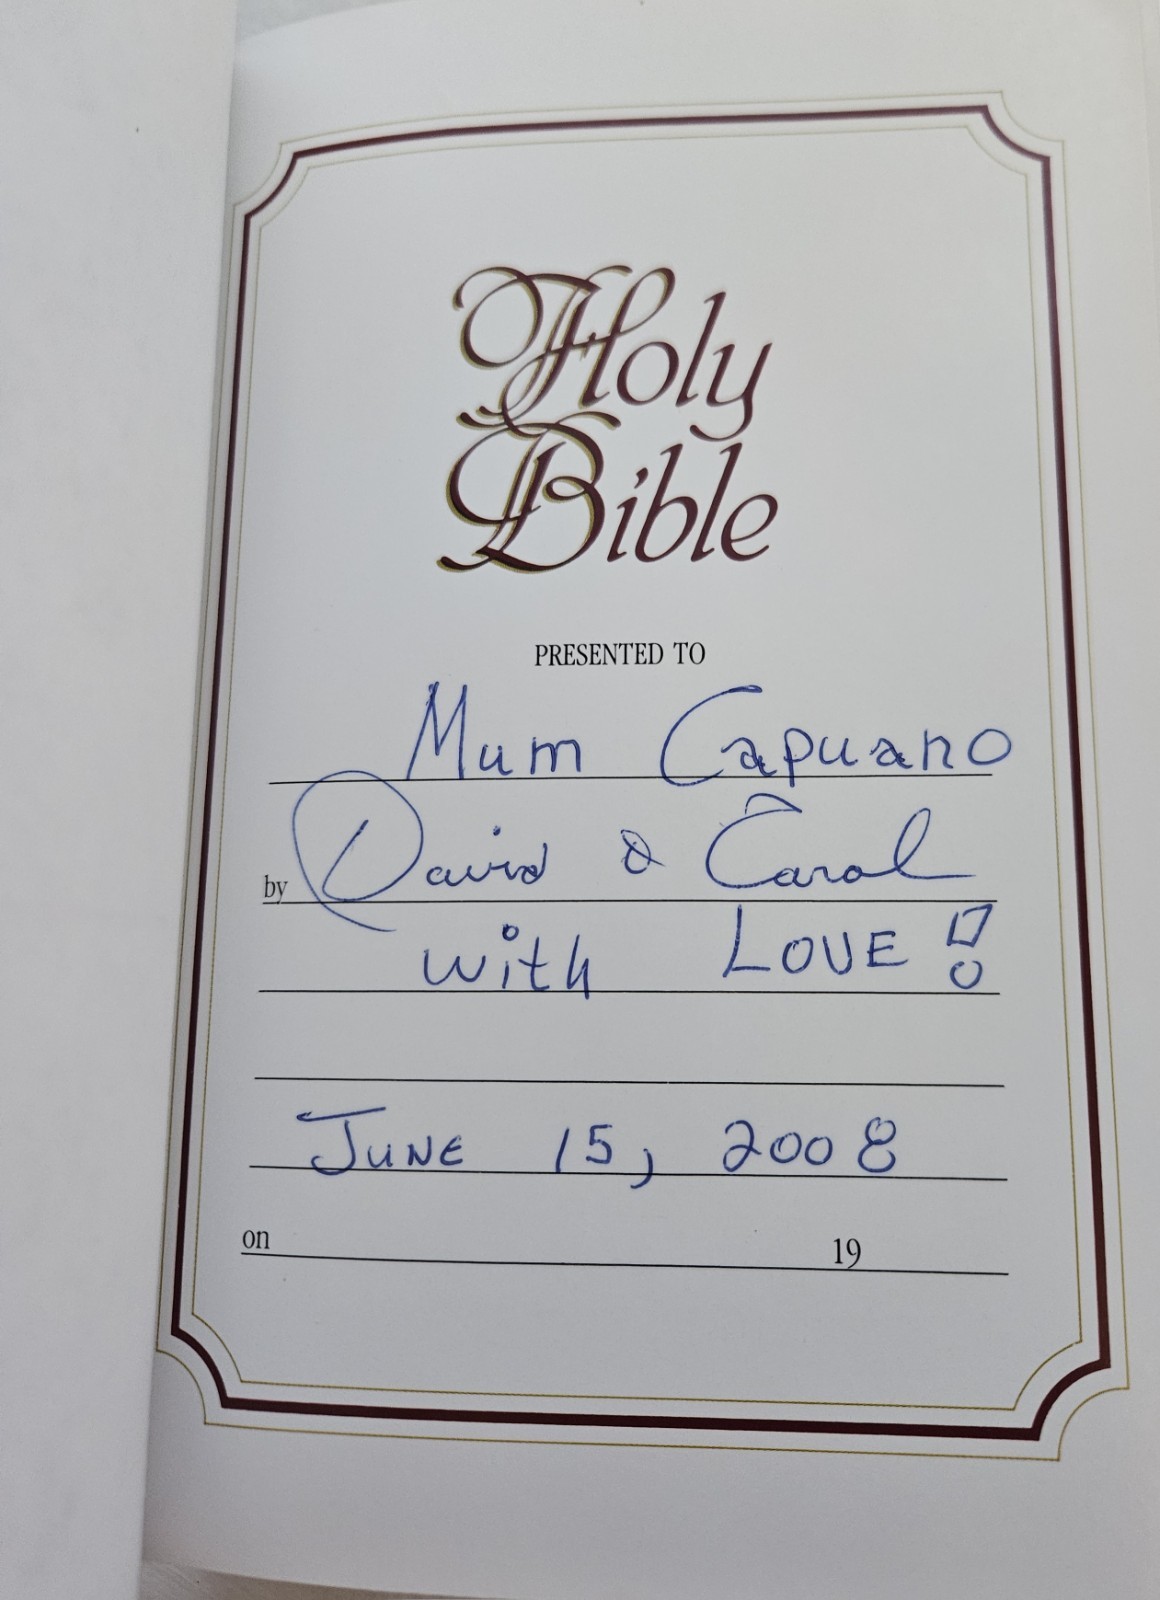 Holy
Bible
PRESENTED TO
Mum Capuano
by David & Carol
with LOVE!
JUNE 15, 2008
on 19